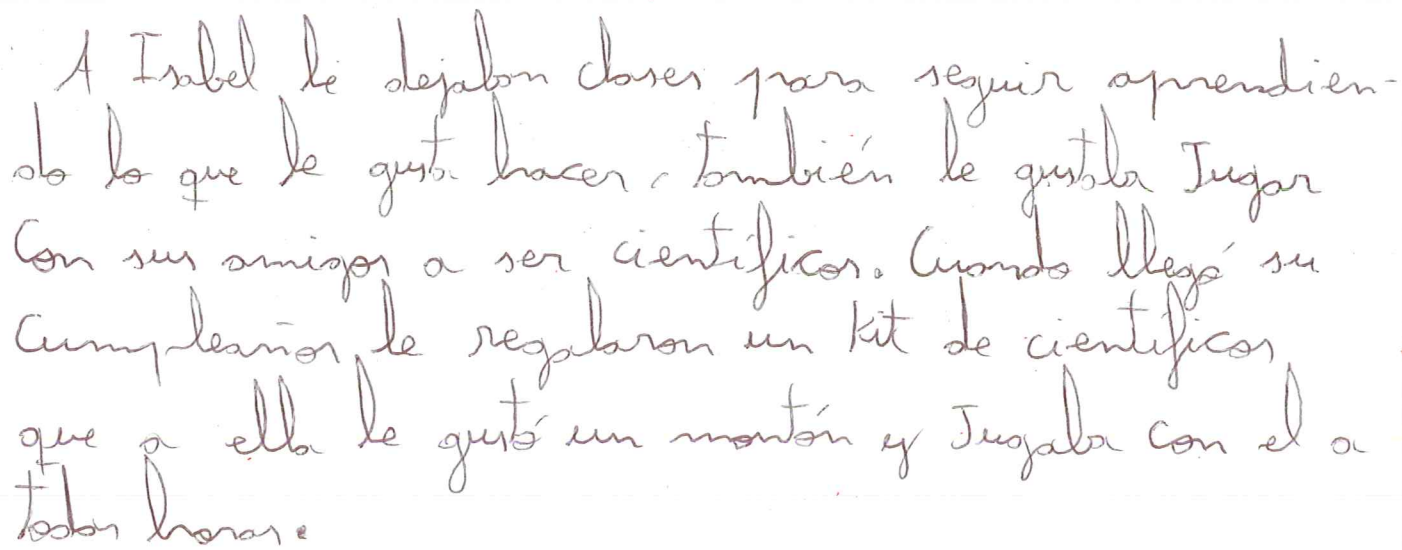 A Isabel le dejaban clases para seguir aprendien-
do lo que le gusta hacer, también le gustaba Jugar
Con sus amigos a ser científicos. Cuando llegó su
Cumpleaños, le regalaron un kit de científicos
que a ella le gustó un montón y Jugaba con el a
todas horas.